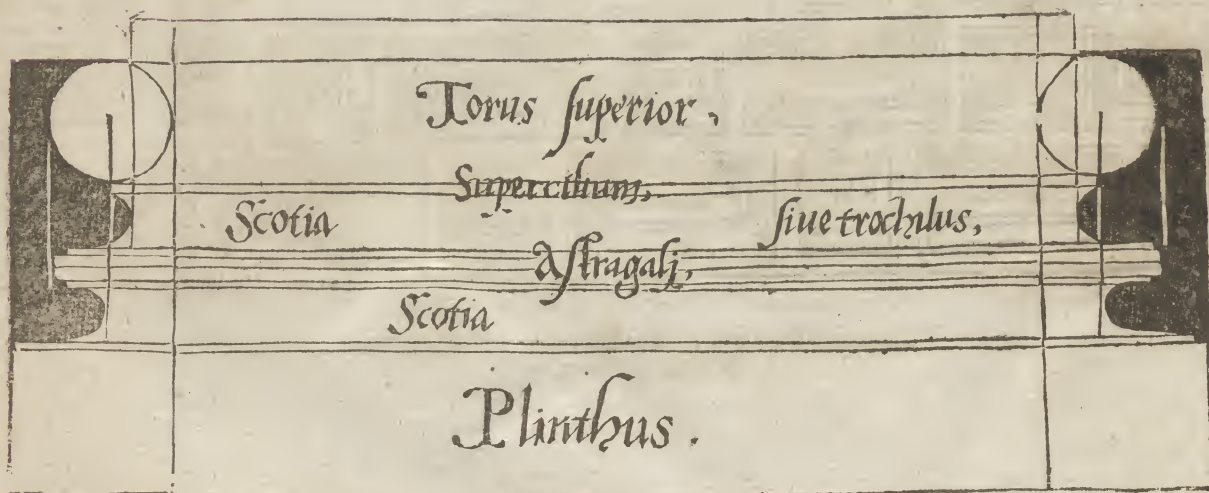 Torus superior,
Supercilium,
Scotia siue trochilus,
Astragalj,
Scotia
Plinthus.